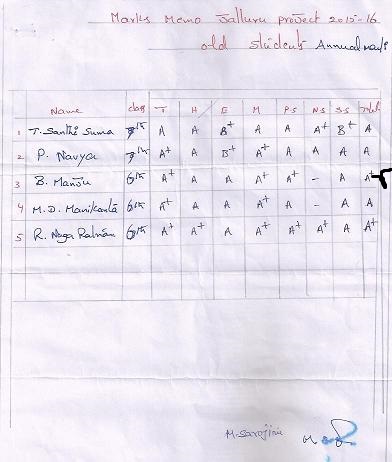 Marks Memo Jalluru project 2015-16
old students Annual marks
Name class T H E M P.S N.S S.S Total
1 T. Santhi Suma 7th A A B+ A A A+ B+ A
2 P. Navya 7th A+ A B+ A+ A A A A
3 B. Manju 6th A+ A A A+ A+ - A A+
4 M.D. Manikanta 6th A+ A A A+ A - A A
5 R. Naga Ratnam 6th A+ A+ A A+ A+ A+ A A+
M. Sarojini